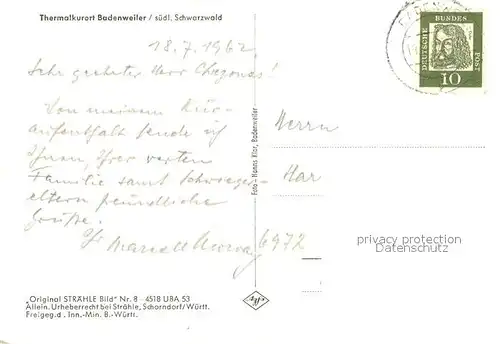 Thermalkurort Badenweiler / südl. Schwarzwald
18.7.1962
Sehr geehrter Herr
Von meinem Kur-
aufenthalt sende ich
Ihnen, Ihrer werten
Familie samt Schwieger-
eltern freundliche
Grüße.
Ihr
6972
Foto - Hanns Klar, Badenweiler
DEUTSCHE BUNDES POST
10
Herrn
privacy protection
AKPool.de
Agfa
„Original STRÄHLE Bild" Nr. 8 - 4518 UBA 53
Allein. Urheberrecht bei Strähle, Schorndorf/Württ.
Freigeg. d. Inn.-Min. B.-Württ.